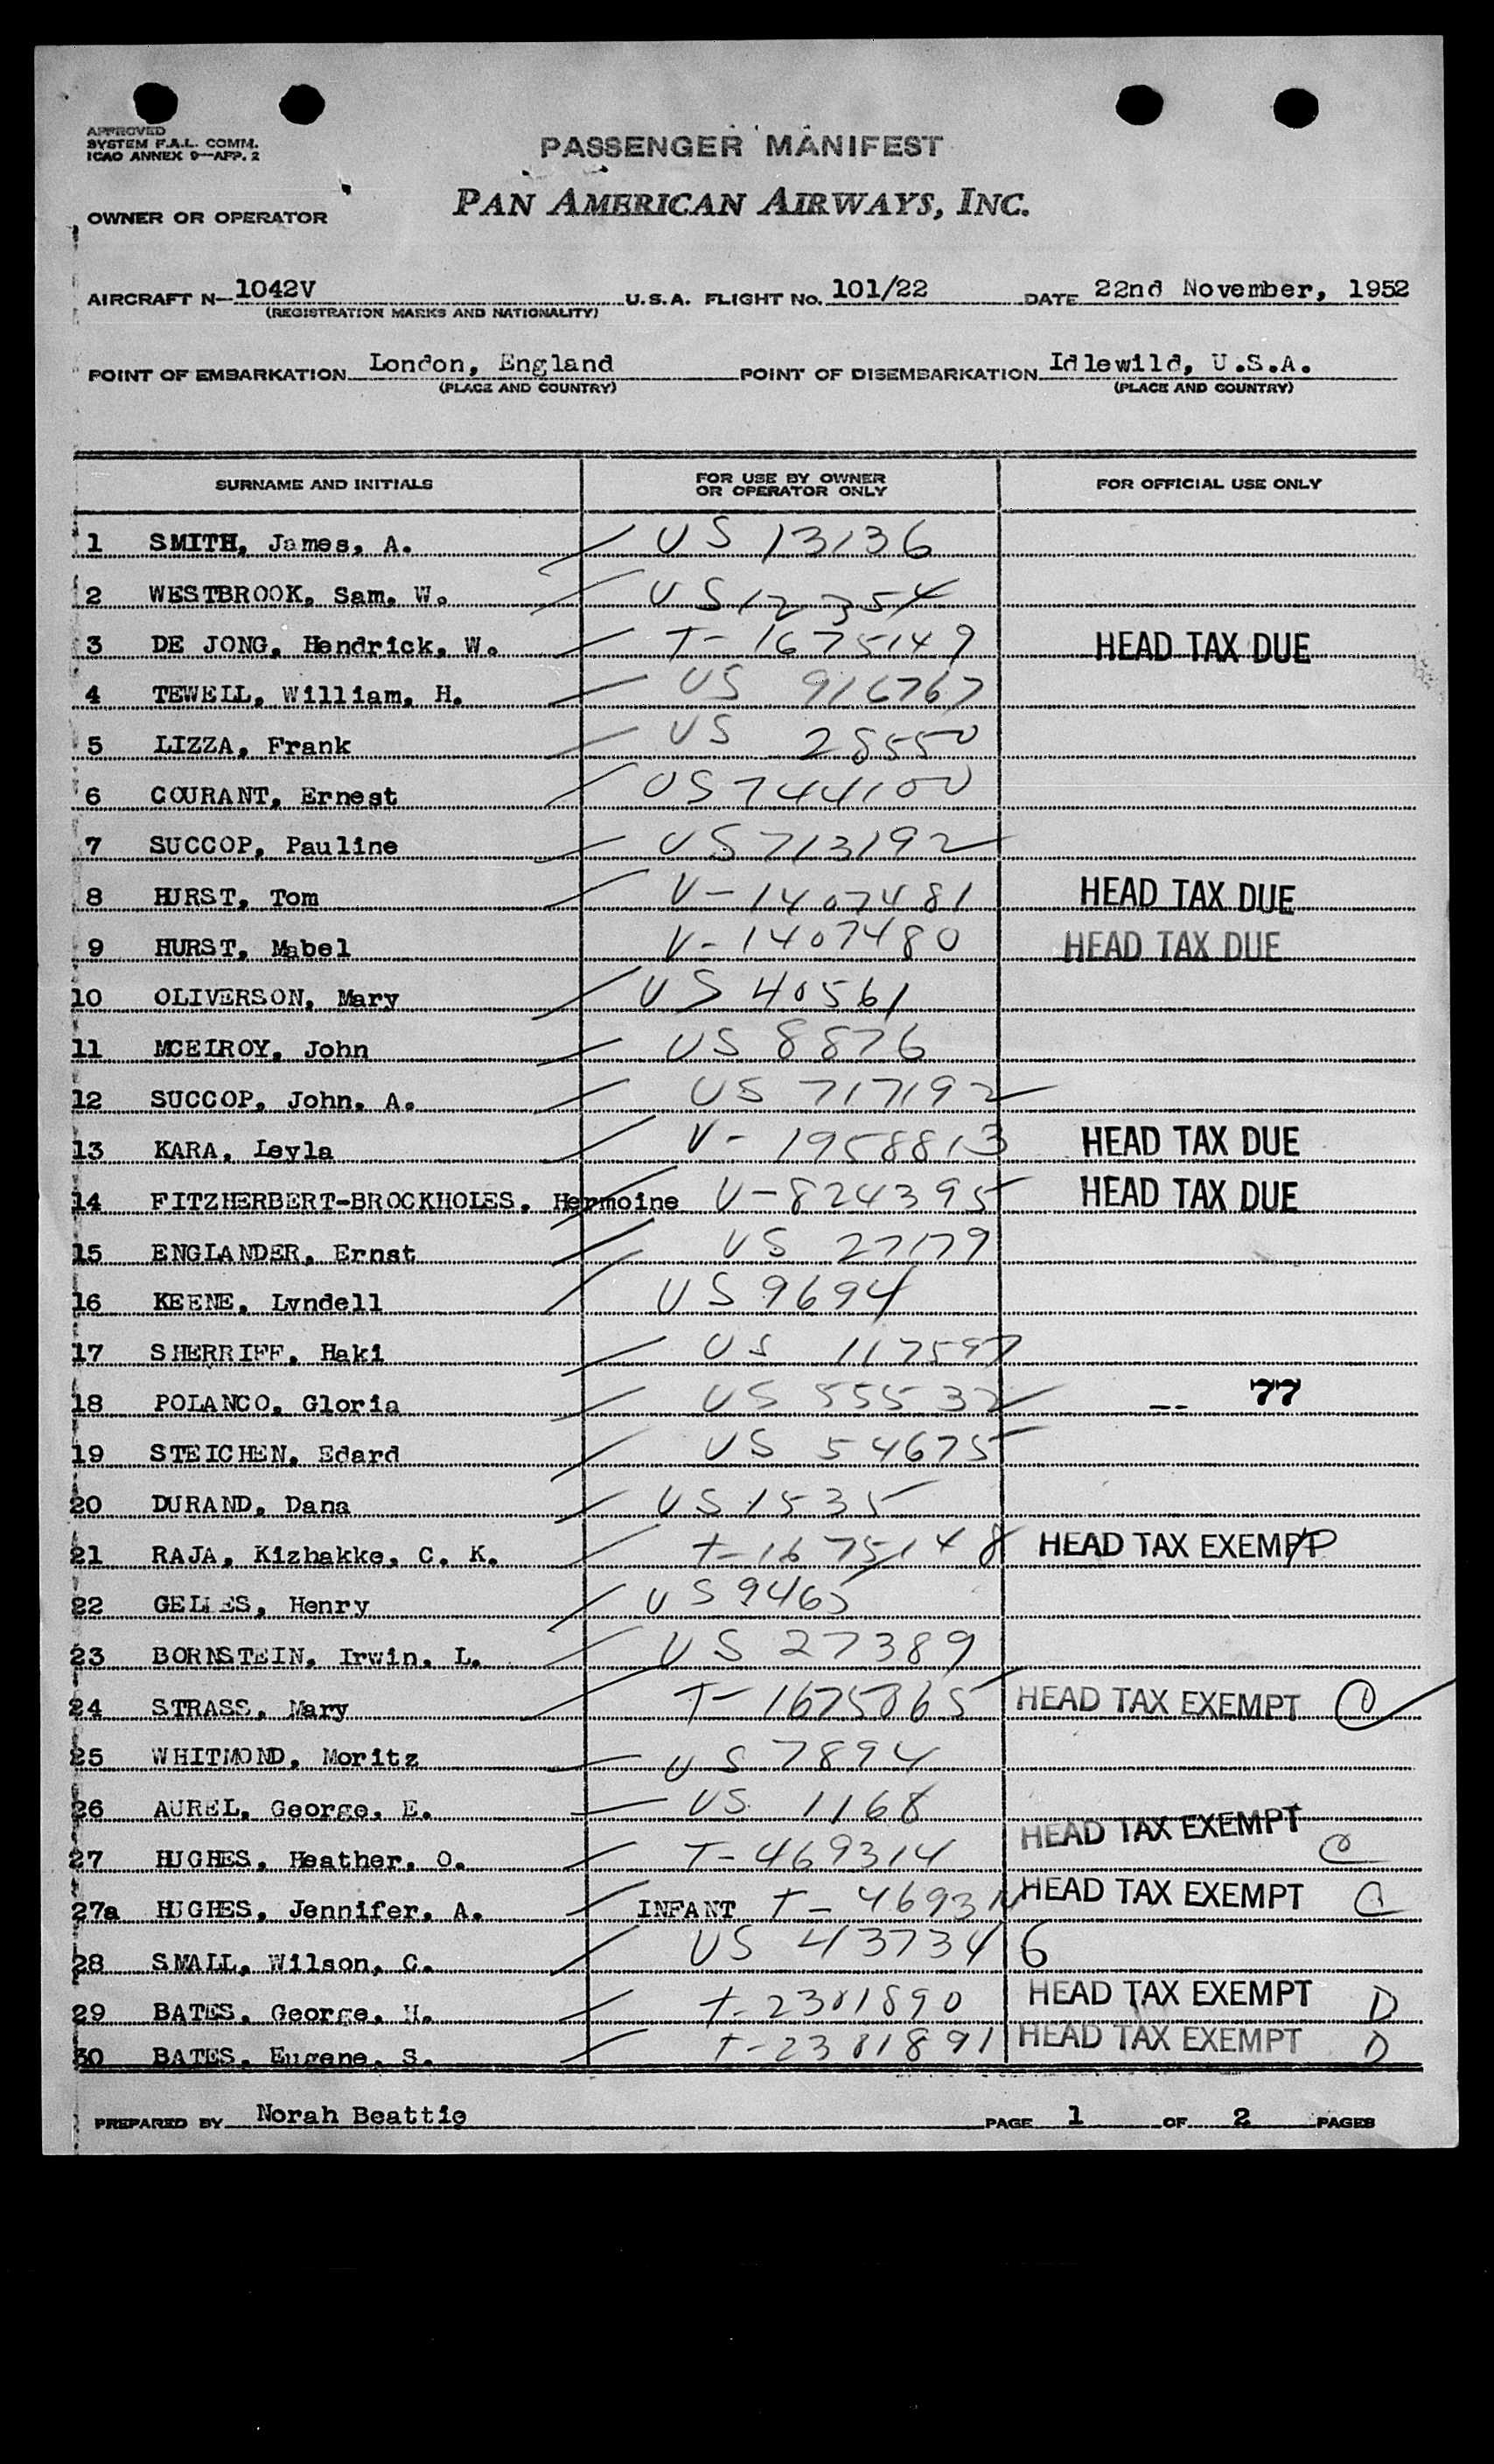 APPROVED
SYSTEM F.A.L. COMM.
ICAO ANNEX 9—APP. 2
PASSENGER MANIFEST
OWNER OR OPERATOR PAN AMERICAN AIRWAYS, INC.
AIRCRAFT N- 1042V U.S.A. FLIGHT No. 101/22 DATE 22nd November, 1952
(REGISTRATION MARKS AND NATIONALITY)
POINT OF EMBARKATION London, England POINT OF DISEMBARKATION Idlewild, U.S.A.
(PLACE AND COUNTRY) (PLACE AND COUNTRY)
SURNAME AND INITIALS FOR USE BY OWNER OR OPERATOR ONLY FOR OFFICIAL USE ONLY
1 SMITH, James, A. US 13136
2 WESTBROOK, Sam, W. US 12354
3 DE JONG, Hendrick, W. T-1675149 HEAD TAX DUE
4 TEWELL, William, H. US 916767
5 LIZZA, Frank US 28550
6 COURANT, Ernest US 744100
7 SUCCOP, Pauline US 713192
8 HURST, Tom V-1407481 HEAD TAX DUE
9 HURST, Mabel V-1407480 HEAD TAX DUE
10 OLIVERSON, Mary US 40561
11 MCELROY, John US 8876
12 SUCCOP, John, A. US 717192
13 KARA, Leyla V-1958813 HEAD TAX DUE
14 FITZHERBERT-BROCKHOLES, Hermoine V-824395 HEAD TAX DUE
15 ENGLANDER, Ernst US 27179
16 KEENE, Lyndell US 9694
17 SHERRIFF, Haki US 117597
18 POLANCO, Gloria US 55532 -- 77
19 STEICHEN, Edard US 54675
20 DURAND, Dana US 1535
21 RAJA, Kizhakke, C. K. T-1675148 HEAD TAX EXEMPT
22 GELLES, Henry US 9465
23 BORNSTEIN, Irwin, L. US 27389
24 STRASS, Mary T-1675065 HEAD TAX EXEMPT C
25 WHITMOND, Moritz US 7894
26 AUREL, George, E. US 1168
27 HUGHES, Heather, O. T-469314 HEAD TAX EXEMPT C
27a HUGHES, Jennifer, A. INFANT T-469314 HEAD TAX EXEMPT C
28 SMALL, Wilson, C. US 437346
29 BATES, George, H. T-2301890 HEAD TAX EXEMPT D
30 BATES, Eugene, S. T-2301891 HEAD TAX EXEMPT D
PREPARED BY Norah Beattie PAGE 1 OF 2 PAGES